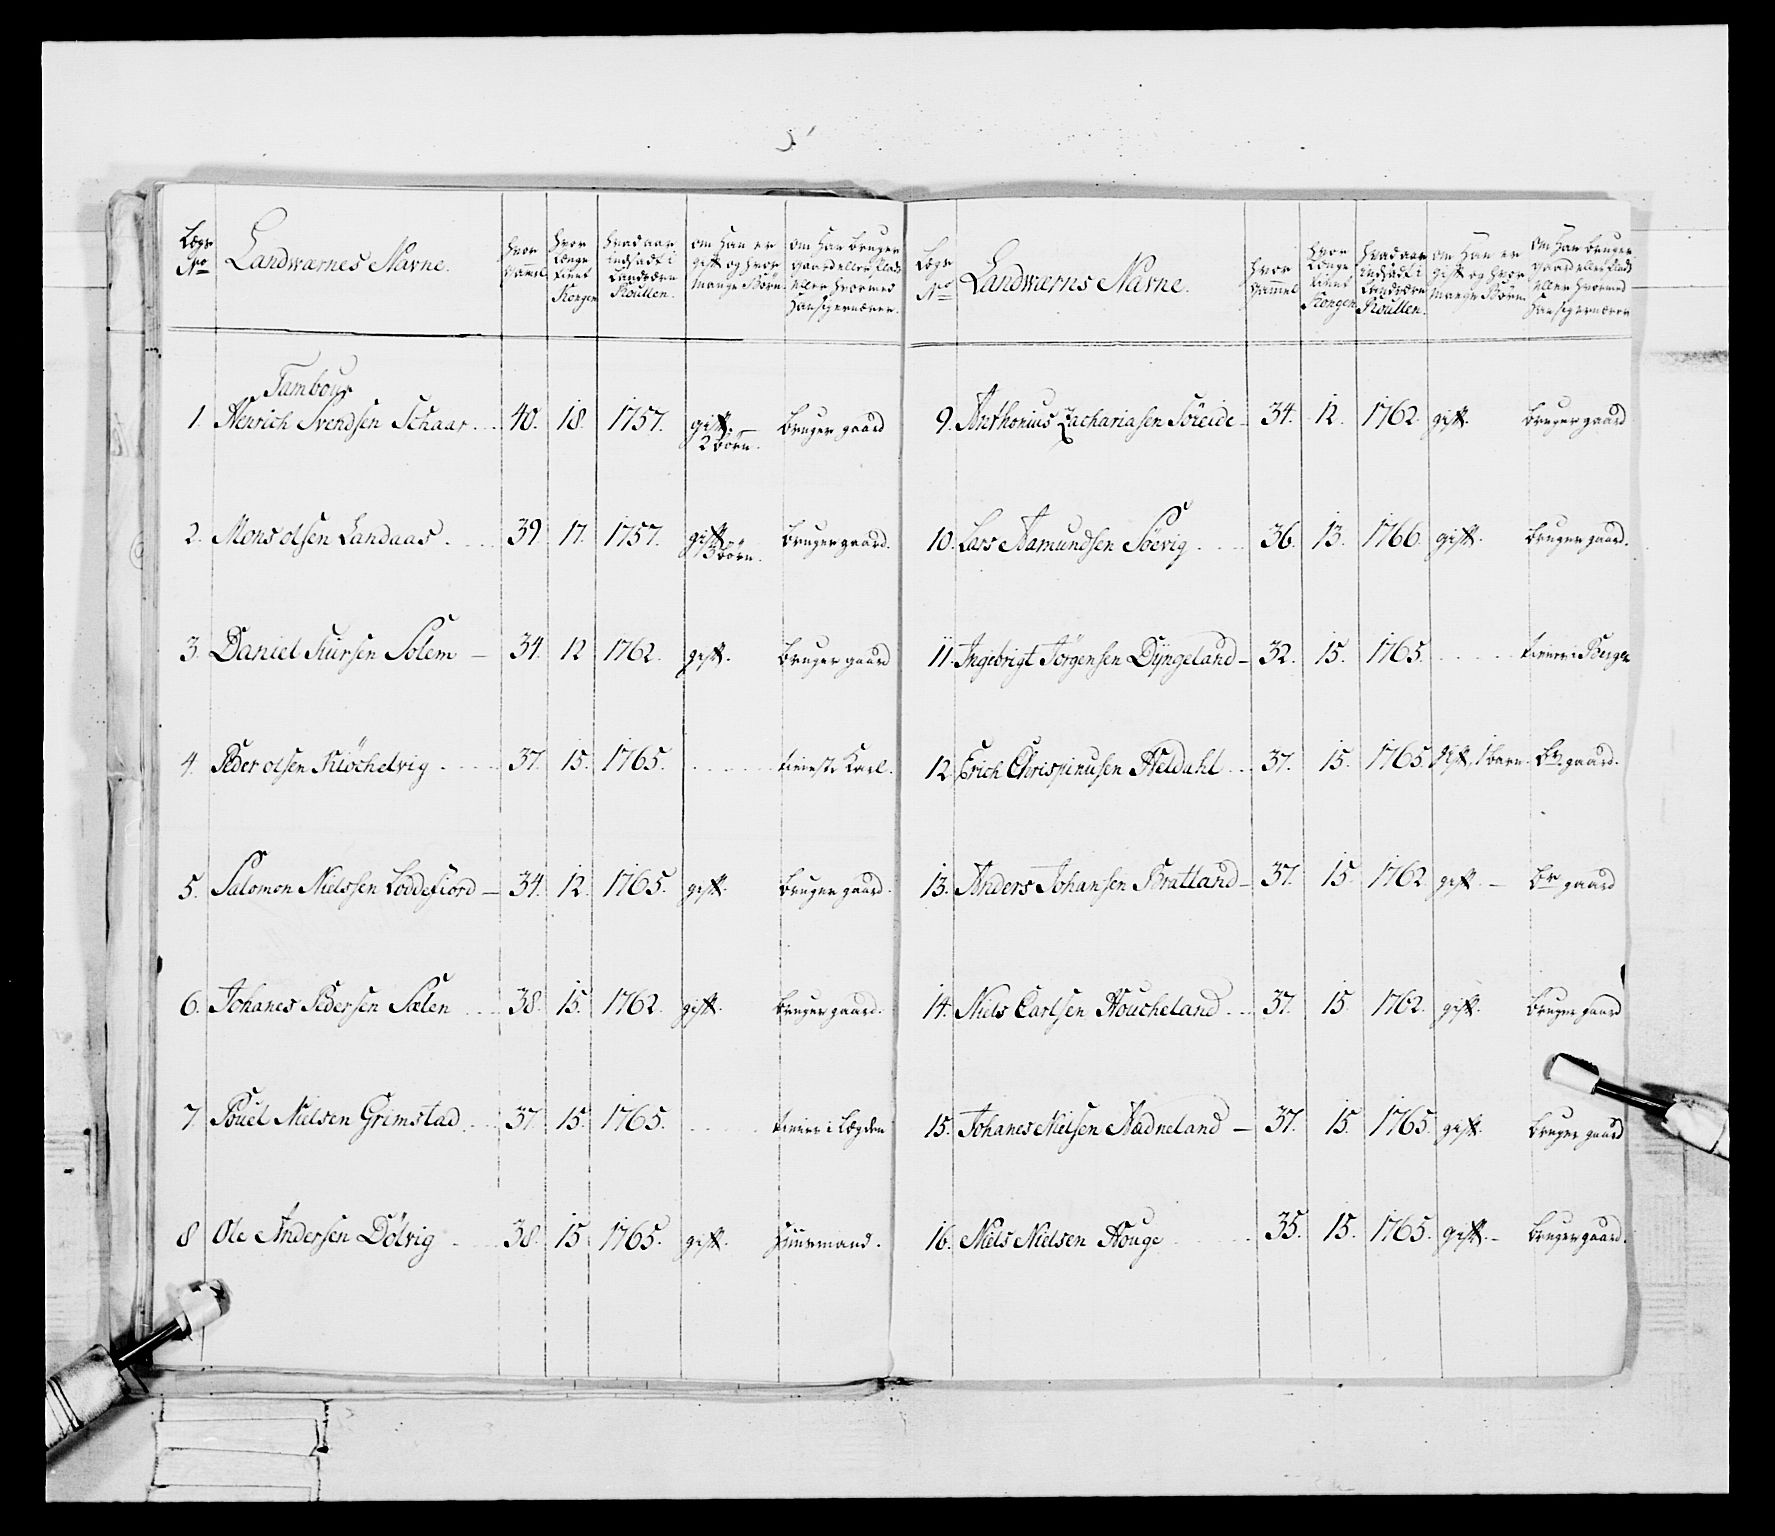 Lægs No
Landwærnes Navne.
hvor gammel
hvor Længe tient Kongen
hvad aar indsadt i Landværn Roullen.
om han er gift og hvor mange Börn
om han bruger gaard eller Plads eller hvormed han sig ernærer.
Tambour
1. Henrich Svendsen Schaar 40. 18. 1757. gift. bruger gaard
2 börn.
2. Mons olsen Landaas. 39. 17. 1757. gift bruger gaard.
3 börn.
3. Daniel Siursen Solem — 34. 12 1762. gift. bruger gaard
4. Peder olsen Klöchelvig 37. 15. 1765. tieneste Karl.
5. Salomon Nielssen Loddefiord — 34. 12. 1765. gift. bruger gaard.
6. Johanes Pedersen Sælen 38. 15. 1762. gift. bruger gaard.
7. Pouel Nielsen Grimstad 37. 15. 1765. tiener i Lægden
8 Ole Andersen Dölvig 38. 15 1765. gift. huusmand.
Lægs No
Landwærns Navne.
hvor gammel
hvor Længe tient Kongen
hvad aar indsadt i Landværn Roullen.
om han er gift og hvor mange Börn
om han bruger gaard eller Plads eller hvormed han sig ernærer
9. Anthonius Zachariasen Söreide — 34. 12. 1762. gift. bruger gaard
10. Lars Aamundsen Söevig 36. 13. 1766. gift. bruger gaard.
11. Ingebrigt Jörgensen Dÿngeland — 32. 15. 1765. tiener i Bergen
12. Erich Chrispinusen Heldahl 37. 15. 1765. gift, 1 barn. br gaard.
13. Anders Johansen Bratland — 37. 15. 1762 gift. — br gaard
14. Niels Carlsen Houcheland 37. 15 1762. gift. bruger gaard
15. Johanes Nielsen Nædneland — 37. 15 1765. gift. bruger gaard
16. Niels Nielsen Houge 35. 15. 1765. gift. — bruger gaard.